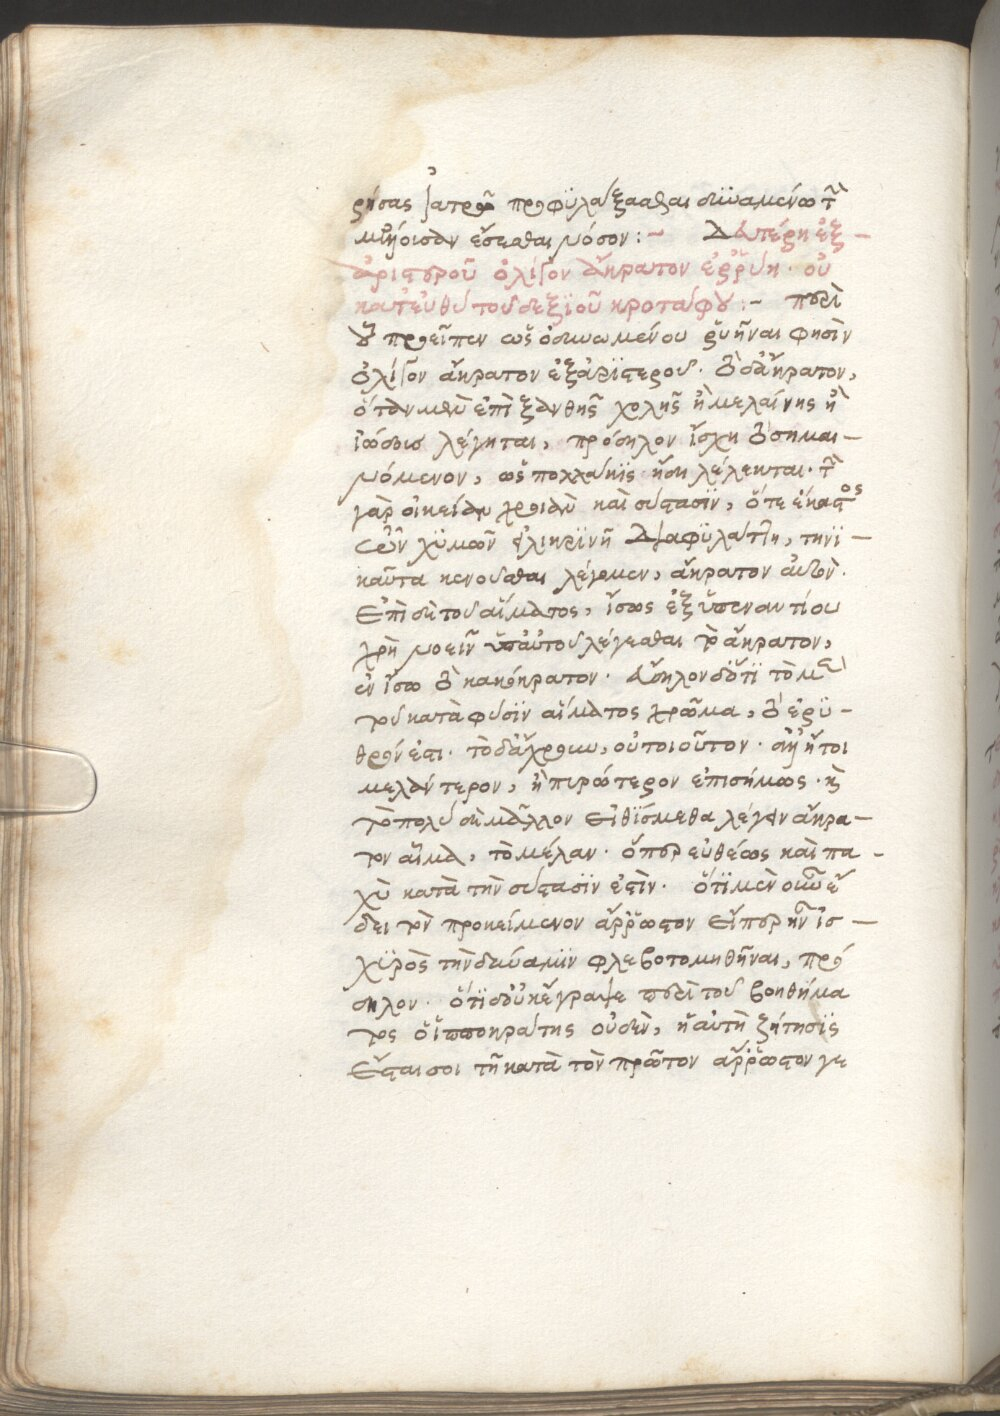 ρήσας ἰατροῦ προφυλάξασθαι δυναμένω τὴν
μέλλουσαν ἔσεσθαι νόσον:– Δευτέρη ἐξ –
ἀριστεροῦ ὀλίγον ἄκρατον ἐρρύη· οὐ
κατευθὺ τοῦ δεξιοῦ κροτάφου:– περὶ
οὗ προεῖπεν ὡς ὀδυνωμένου ῥυῆναι φησὶν
ὀλίγον ἄκρατον ἐξ ἀριστεροῦ. τὸ δ' ἄκρατον,
ὅταν μὲν ἐπὶ ξανθῆς χολῆς ἢ μελαίνης ἢ
ἰώδους λέγηται, πρόδηλον ἴσχη τὸ σημαι–
νόμενον, ὡς πολλάκις ἤδη λέλεκται. τὴν
γὰρ οἰκείαν χροιὰν καὶ σύστασιν, ὅτε ἕκαστος
τῶν χυμῶν εἰλικρινῆ διαφυλάττη, τηνι–
καῦτα κενοῦσθαι λέγομεν, ἄκρατον αὐτόν.
ἐπὶ δὲ τοῦ αἵματος, ἴσως ἐξ ὑπεναντίου
χρὴ νοεῖν ὑπ' αὐτοῦ λέγεσθαι τὸ ἄκρατον,
ἐν ἴσω τὸ κακόκρατον. εὔδηλον δ' ὅτι τὸ μὲν
τοῦ κατὰ φύσιν αἵματος χρῶμα, τὸ ἐρυ–
θρόν ἐστι. τὸ δ' ἄχρουν, οὐ τοιοῦτον. ἀλλ' ἤτοι
μελάντερον, ἢ πυρρότερον ἐπισήμως. καὶ
τὸ πολὺ δὲ μᾶλλον εἰθίσμεθα λέγειν ἄκρα–
τον αἷμα, τὸ μέλαν. ὅπερ εὐθέως καὶ πα–
χὺ κατὰ τὴν σύστασιν ἐστίν. ὅτι μὲν οὖν ἔ
δει τὸν προκείμενον ἄρρωστον εἴπερ ἦν ἰσ–
χυρὸς τὴν δύναμιν φλεβοτομηθῆναι, πρό
δηλον. ὅτι δ' οὐκ ἔγραψε περὶ τοῦ βοηθήμα
τος ὁ ἱπποκράτης οὐδὲν, ἡ αὐτὴ ζήτησις
ἔσται σοι τῆ κατὰ τὸν πρῶτον ἄρρωστον γε